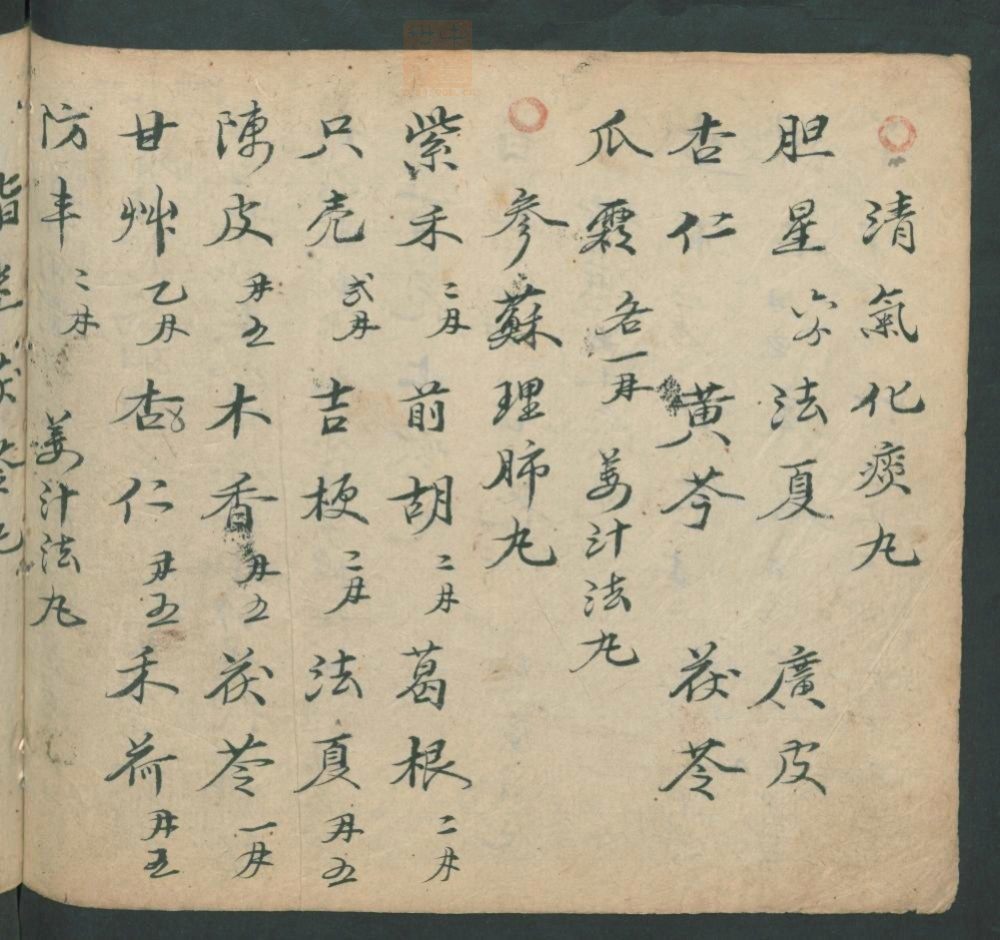 清氣化痰丸
胆星 法夏 廣皮
杏仁 黄芩 茯苓
瓜霜 各一刄 姜汁法丸
參蘇理肺丸
紫禾 二刄 前胡 二刄 葛根 二刄
只壳 弍刄 吉梗 二刄 法夏 刄五
陳皮 刄五 木香 刄五 茯苓 一刄
甘艸 乙刄 杏仁 刄五 禾荷 刄五
防丰 二刄 姜汁法丸